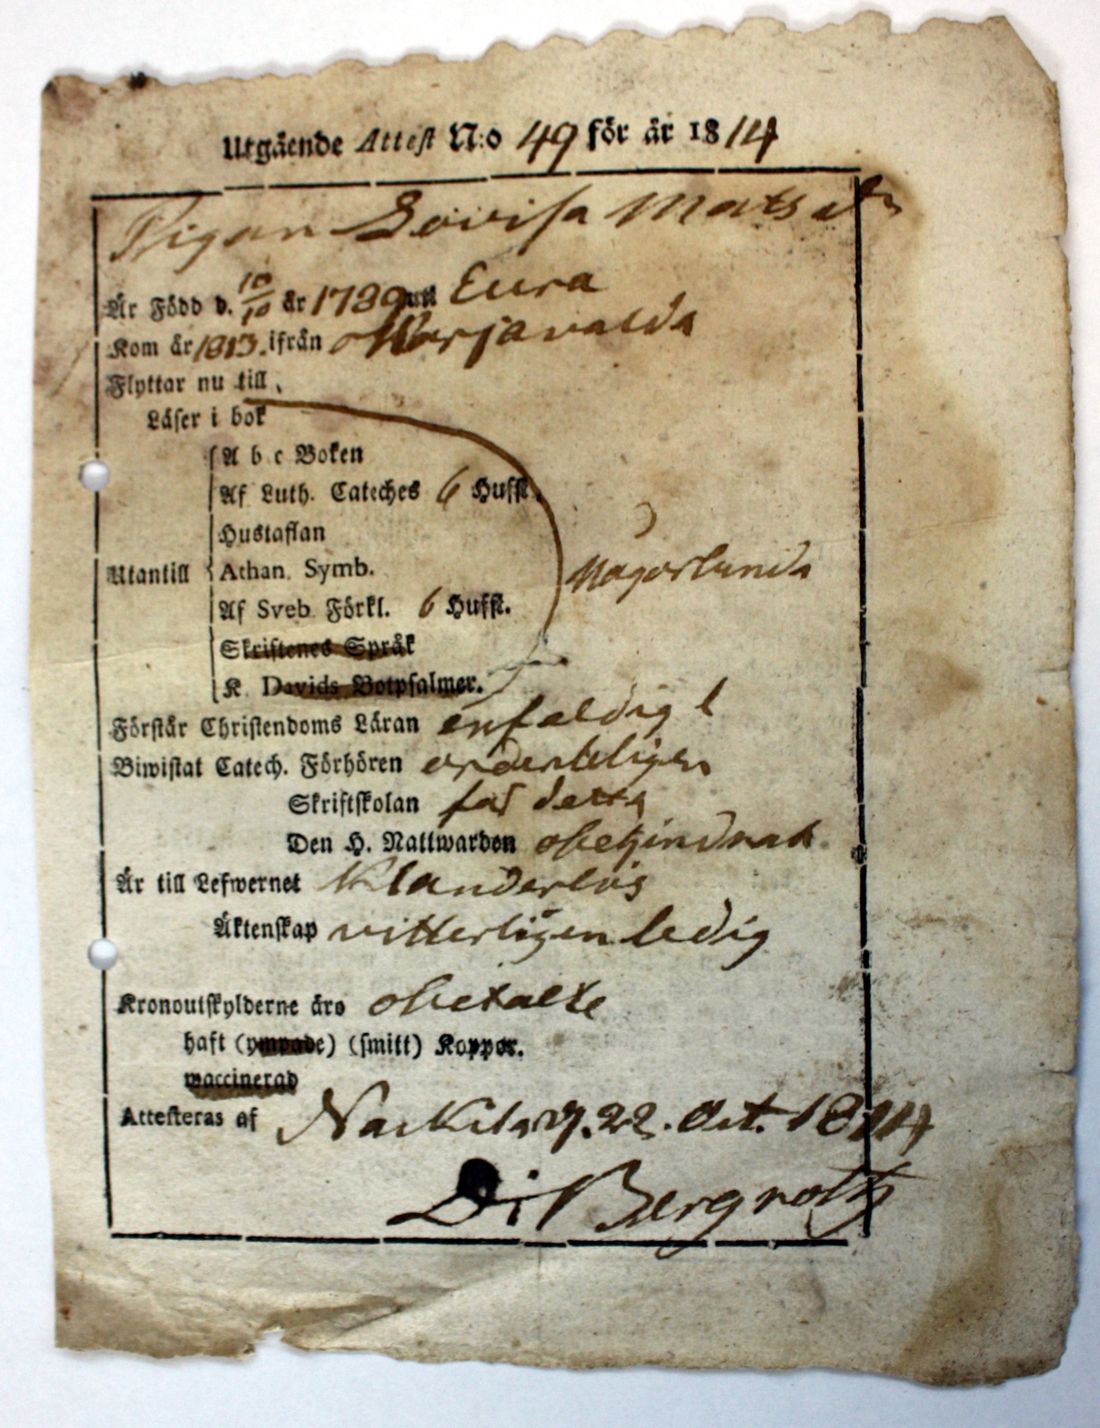 Utgående Attest N:o 49 för år 1814
Pigan Lovisa Mats dr
Är Född d. 10/10 år 1789 uti Eura
Kom år 1813. ifrån Harjavalda
Flyttar nu till
Läser i bok
A b c Boken
Af Luth. Cateches 6 Hufst.
Hustaflan
Utantill Athan. Symb. någorlunda
Af Sveb Förkl. 6 Hufst.
Skriftenes Språk
K Davids Botpsalmer.
Förstår Christendoms Läran enfaldigt
Biwistat Catech. Förhören ordenteligen
Skriftskolan för detta
Den H. Nattwarden obehindrad
Är till Lefwernet Klanderlös
Äktenskap vitterligen ledig
Kronoutskylderne äro obetalte
haft (ympade) (smitt) Koppor.
waccinerad
Attesteras af Nackila d. 22. Oct. 1814
Bergroth